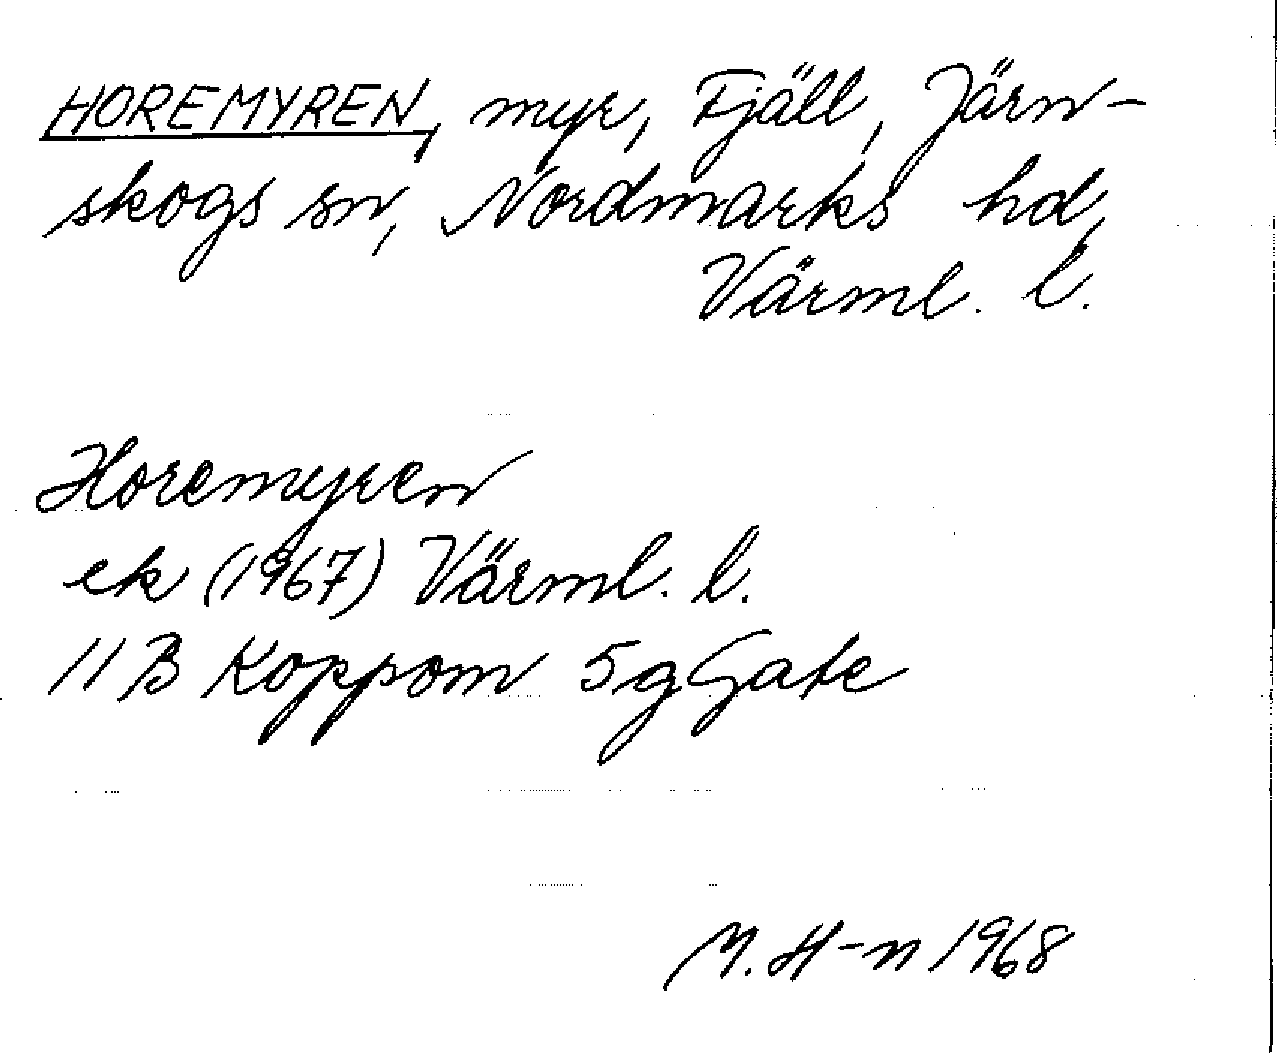 HOREMYREN, myr, Fjäll, Järn-
skogs sn, Nordmarks hd,
Värml. l.
Horemyren
ek (1967) Värml. l.
11 B Koppom 5g Gate
M. H-n 1968